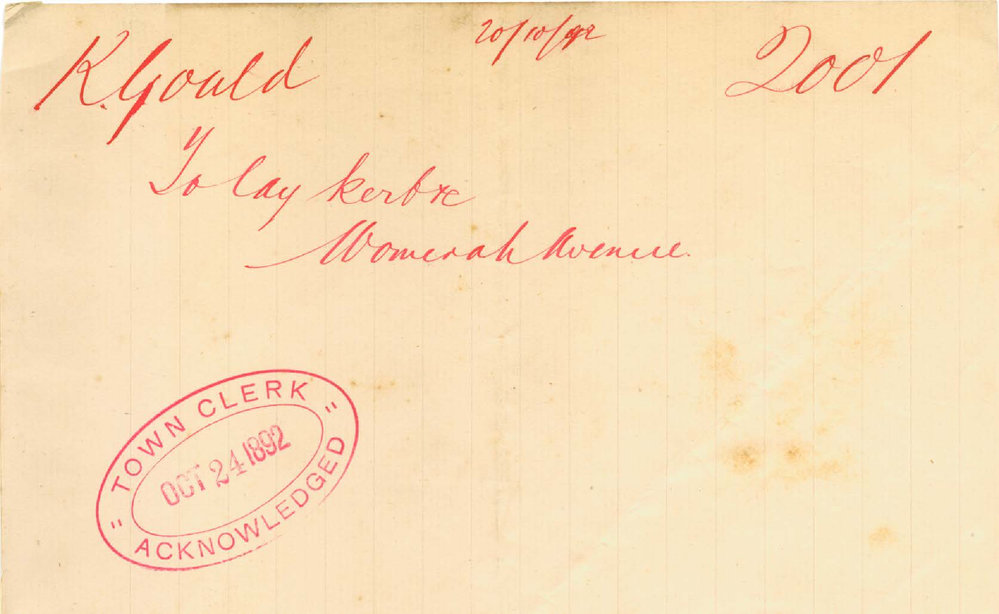 K. Gould 20/10/92 2001
To lay kerb &c
Womerah Avenue.
" TOWN CLERK "
OCT 24 1892
ACKNOWLEDGED